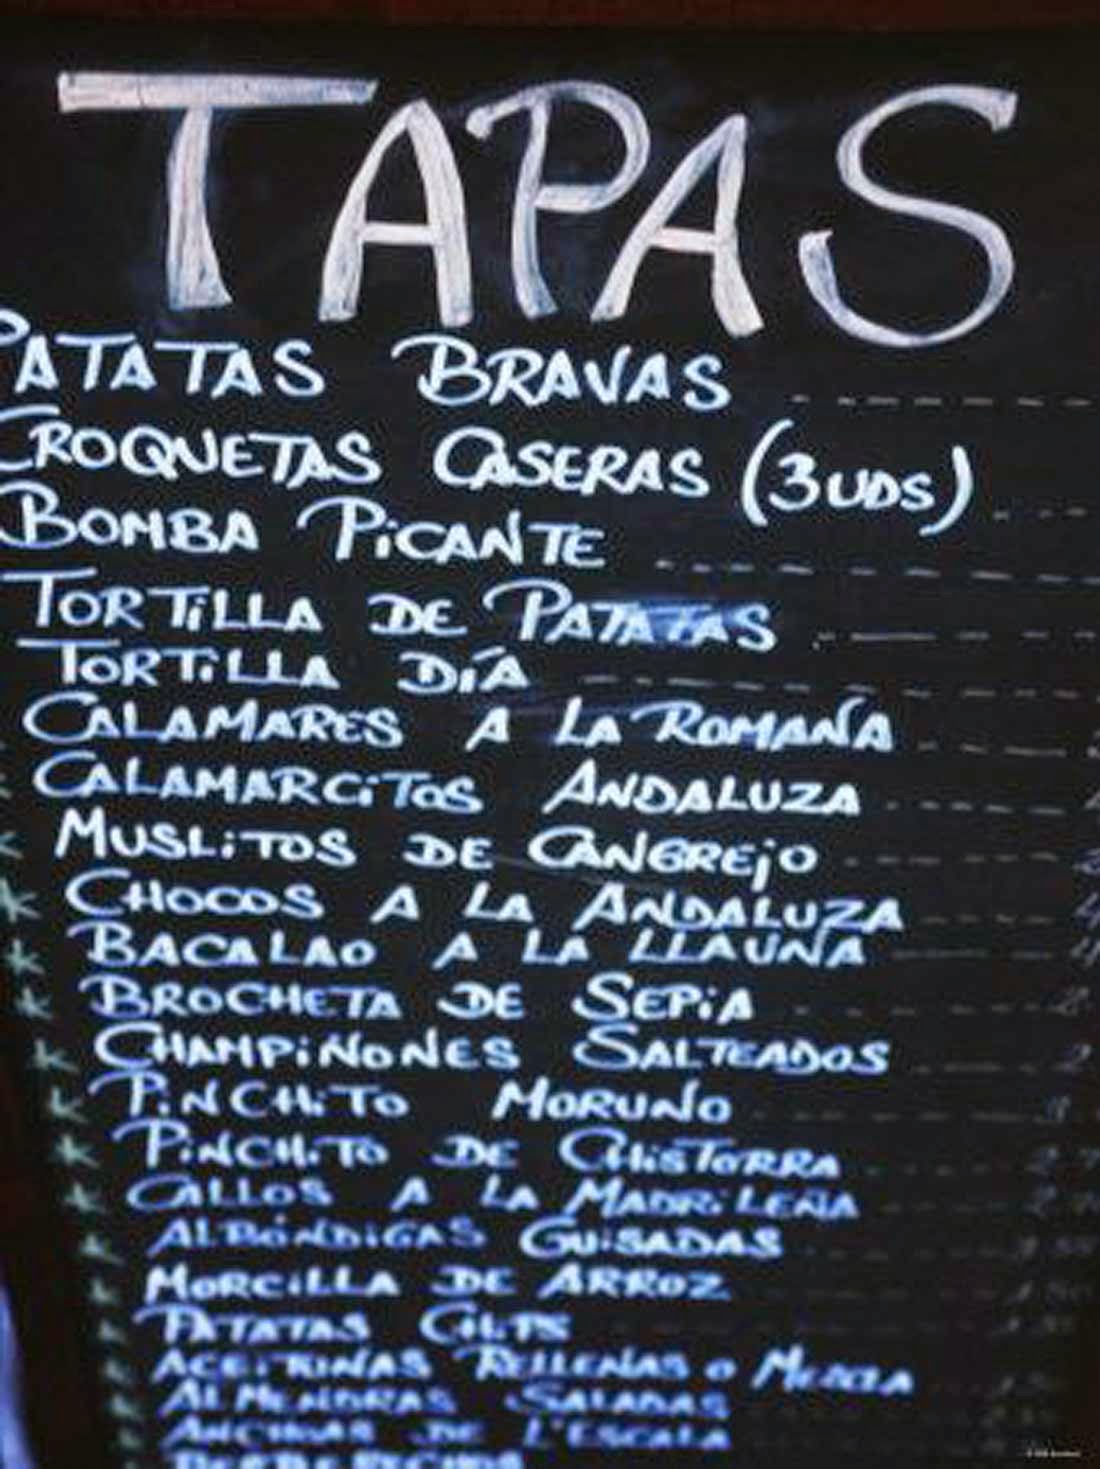 TAPAS
PATATAS BRAVAS
CROQUETAS CASERAS (3 UDS)
BOMBA PICANTE
TORTILLA DE PATATAS
TORTILLA DÍA
CALAMARES A LA ROMAÑA
CALAMARCITOS ANDALUZA
MUSLITOS DE CANGREJO
CHOCOS A LA ANDALUZA
BACALAO A LA LLAUNA
BROCHETA DE SEPIA
CHAMPIÑONES SALTEADOS
PINCHITO MORUNO
PINCHITO DE CHISTORRA
CALLOS A LA MADRILEÑA
ALBÓNDIGAS GUISADAS
MORCILLA DE ARROZ
PATATAS CHIPS
ACEITUNAS RELLENAS O MEZCLA
ALMENDRAS SALADAS
ANCHOAS DE L'ESCALA